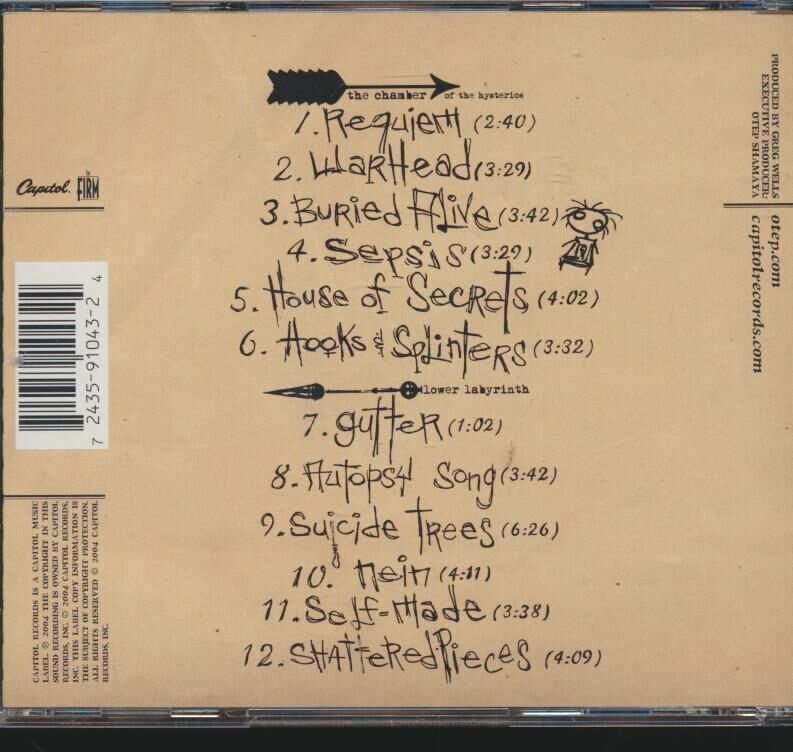 the chamber of the hysterics
1. Requiem (2:40)
2. Warhead (3:29)
3. Buried Alive (3:42)
4. Sepsis (3:29)
5. House of Secrets (4:02)
6. Hooks & Splinters (3:32)
lower labyrinth
7. gutter (1:02)
8. Autopsy Song (3:42)
9. Suicide Trees (6:26)
10. Nein (4:11)
11. Self-Made (3:38)
12. Shattered Pieces (4:09)
Capitol.
FIRM
7 2435-91043-2 4
CAPITOL RECORDS IS A CAPITOL MUSIC
LABEL. ℗ 2004 THE COPYRIGHT IN THIS
SOUND RECORDING IS OWNED BY CAPITOL
RECORDS, INC. © 2004 CAPITOL RECORDS,
INC. THIS LABEL COPY INFORMATION IS
THE SUBJECT OF COPYRIGHT PROTECTION.
ALL RIGHTS RESERVED © 2004 CAPITOL
RECORDS, INC.
PRODUCED BY GREG WELLS
EXECUTIVE PRODUCER:
OTEP SHAMAYA
otep.com
capitolrecords.com